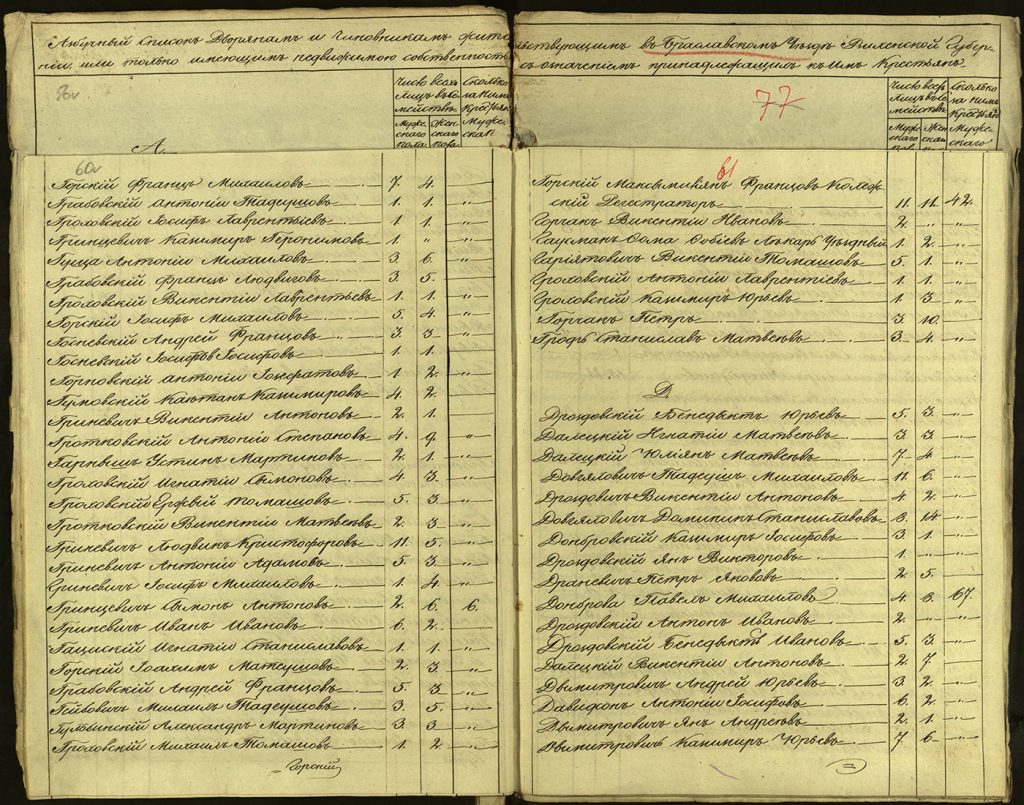 Азбучный Списокъ Дворянамъ и Чиновникамъ жите
ніи, или только имеющимъ недвижимою собственность
76
Число всехъ Лицъ въ семействе
Мужескаго пола
Женскаго пола
Сколько за ними Крестьянъ Мужескаго
А.
60
Горскій Францъ Михаиловъ 7. 4. "
Грабовскій Антоній Тадеушовъ 1. 1. "
Гроховскій Іосифъ Лаврентьевъ 1 1 "
Гринцевичъ Казимиръ Геронимовъ 1. " "
Гуща Антоній Михаиловъ 3 6. "
Грабовскій Францъ Людвиговъ 3 5. "
Гроховскій Викентій Лаврентьевъ 1. 1. "
Горскій Іосифъ Михаиловъ 5. 4. "
Госневскій Андрей Францовъ 3. 3 "
Госневскій Іосифъ Іосифовъ 1. 1.
Горновскій Антоній Іозефатовъ 1 2.
Каэтанъ Казимировъ 4. 2.
Гриневичъ Викентій Антоновъ 2. 1.
Гротковскій Антоній Степановъ 4. 9. "
Устинъ Мартиновъ 2. 1.
Гроховскій Игнатій Сымоновъ 4 3. "
Гроховскій Томашовъ 5. 3 "
Гротковскій Викентій Матвеевъ 2. 3 "
Гриневичъ Людвикъ Кристофоровъ 11. 5. "
Гриневичъ Антоній Адамовъ 5. 3 "
Гриневичъ Іосифъ Михаиловъ 1. 4. "
Гринцевичъ Сымонъ Антоновъ 2. 6. 6.
Гриневичъ Иванъ Ивановъ 6. 2.
Гациский Игнатій Станиславовъ 1. 1. "
Горскій Іоахимъ Матеушовъ 2. 3 "
Грабовскій Андрей Францовъ 5. 3 "
Гейбовичъ Михаилъ Тадеушовъ 3. 5. "
Гульбинскій Александръ Мартиновъ 3 3 "
Гроховскій Михаилъ Томашовъ 1. 2. "
Горскій
льствующимъ въ Браславскомъ Уезде Виленской Губер-
съ означеніемъ принадлежащихъ къ нимъ Крестьянъ
77
Число всехъ Лицъ въ семействе
Мужескаго
Женскаго
Сколько за ними Крестьянъ Мужескаго
61
Горскій Максымиліянъ Францовъ Коллеж-
скій Регистраторъ 11. 11. 42.
Горчакъ Викентій Ивановъ 2. " "
Гаусманъ Ѳома Лекарь Уездный 1 2. "
Викентій Томашовъ 5. 1. "
Гроховскій Антоній Лаврентіевъ 1. 1. "
Гроховскій Казимиръ Юрьевъ 1 3 "
Горчакъ Петръ 3 10.
Гродзь Станиславъ Матвеевъ 3 4. "
Д.
Дроздовскій Бенедыктъ Юрьевъ 5. 3. "
Далецкій Игнатій Матвеевъ 3 3. "
Далецкій Юліянъ Матвеевъ 7 4 "
Довяловичъ Тадеушъ Михаиловъ 11. 6. "
Дроздовичъ Викентій Антоновъ 4 2. "
Довяловичъ Доминикъ Станиславовъ 8. 14 "
Домбровскій Казимиръ Іосифовъ 3 1. "
Дроздовскій Янъ Викторовъ 1. " "
Драневичъ Петръ Якововъ 2. 5. "
Домброва Павелъ Михаиловъ 4. 8. 67.
Дроздовскій Антонъ Ивановъ 2. " "
Дроздовскій Бенедыктъ Ивановъ 5. 3 "
Далецкій Викентій Антоновъ 2. 7. "
Дымитровичъ Андрей Юрьевъ 3 2. "
Давидонъ Антоній Іосифовъ 6. 2. "
Дымитровичъ Янъ Андреевъ 2. 1. "
Дымитровичъ Казимиръ Юрьевъ 7. 6 "